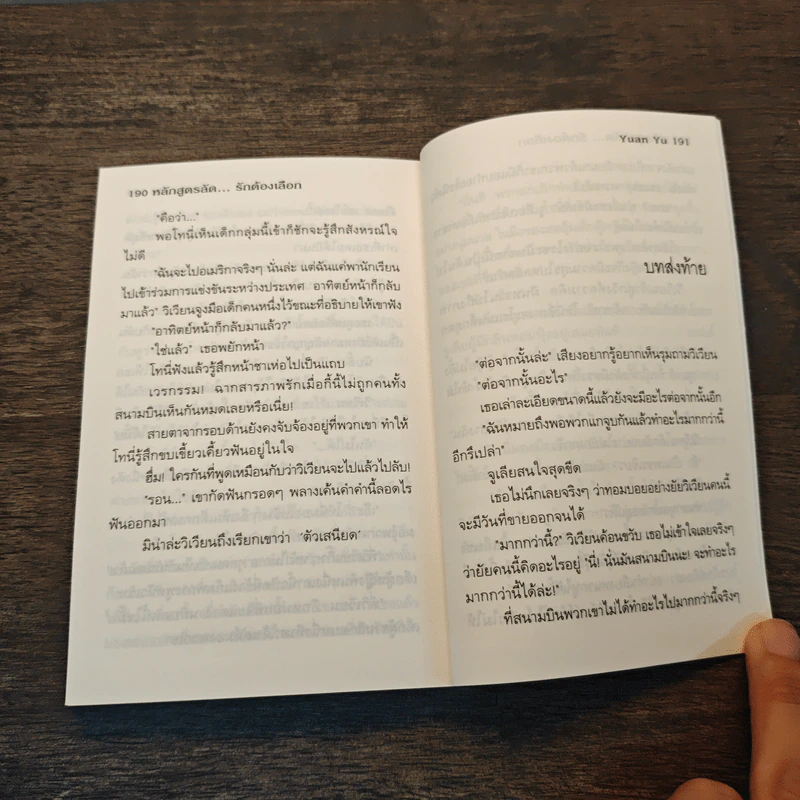 190 หลักสูตรลัด... รักต้องเลือก
"คือว่า..."
พอโทนี่เห็นเด็กกลุ่มนี้เข้าก็ชักจะรู้สึกสังหรณ์ใจ
ไม่ดี
"ฉันจะไปอเมริกาจริงๆ นั่นล่ะ แต่ฉันแค่พานักเรียน
ไปเข้าร่วมการแข่งขันระหว่างประเทศ อาทิตย์หน้าก็กลับ
มาแล้ว" วิเวียนจูงมือเด็กคนหนึ่งไว้ขณะที่อธิบายให้เขาฟัง
"อาทิตย์หน้าก็กลับมาแล้ว?"
"ใช่แล้ว" เธอพยักหน้า
โทนี่ฟังแล้วรู้สึกหน้าชาเห่อไปเป็นแถบ
เวรกรรม! ฉากสารภาพรักเมื่อกี้นี้ไม่ถูกคนทั้ง
สนามบินเห็นกันหมดเลยหรือเนี่ย!
สายตาจากรอบด้านยังคงจับจ้องอยู่ที่พวกเขา ทำให้
โทนี่รู้สึกขบเขี้ยวเคี้ยวฟันอยู่ในใจ
ฮึ่ม! ใครกันที่พูดเหมือนกับว่าวิเวียนจะไปแล้วไปลับ!
"รอน..." เขากัดฟันกรอดๆ พลางเค้นคำคำนี้ลอดไร
ฟันออกมา
มิน่าล่ะวิเวียนถึงเรียกเขาว่า 'ตัวเสนียด'
Yuan Yu 191
บทส่งท้าย
"ต่อจากนั้นล่ะ" เสียงอยากรู้อยากเห็นรุมถามวิเวียน
"ต่อจากนั้นอะไร"
เธอเล่าละเอียดขนาดนี้แล้วยังจะมีอะไรต่อจากนั้นอีก
"ฉันหมายถึงพอพวกแกจูบกันแล้วทำอะไรมากกว่านี้
อีกรึเปล่า"
จูเลียสนใจสุดขีด
เธอไม่นึกเลยจริงๆ ว่าทอมบอยอย่างยัยวิเวียนคนนี้
จะมีวันที่ขายออกจนได้
"มากกว่านี้?" วิเวียนค้อนขวับ เธอไม่เข้าใจเลยจริงๆ
ว่ายัยคนนี้คิดอะไรอยู่ "นี่! นั่นมันสนามบินนะ! จะทำอะไร
มากกว่านี้ได้ล่ะ!"
ที่สนามบินพวกเขาไม่ได้ทำอะไรไปมากกว่านี้จริงๆ